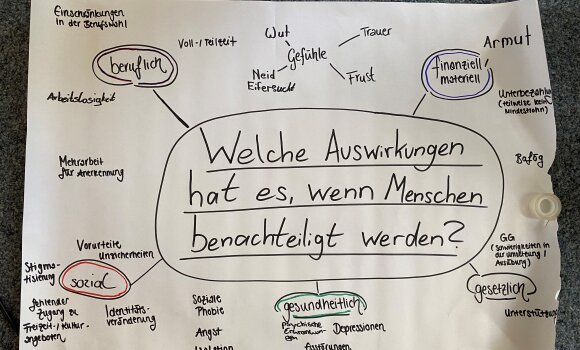 Einschränkungen
in der Berufswahl
Voll-/Teilzeit
beruflich
Arbeitslosigkeit
Mehrarbeit
für Anerkennung
Wut
Trauer
Gefühle
Neid
Eifersucht
Frust
Armut
finanziell
materiell
Unterbezahlung
(teilweise kein
Mindestlohn)
Bafög
Welche Auswirkungen
hat es, wenn Menschen
benachteiligt werden?
Vorurteile
Unsicherheiten
Stigma-
tisierung
sozial
fehlender
Zugang zu
Freizeit-/Kultur-
angeboten
Identitäts-
veränderung
Soziale
Phobie
Angst
Isolation
gesundheitlich
Psychische
Depressionen
GG
(Schwierigkeiten in
der Umsetzung /
Ausübung)
gesetzlich